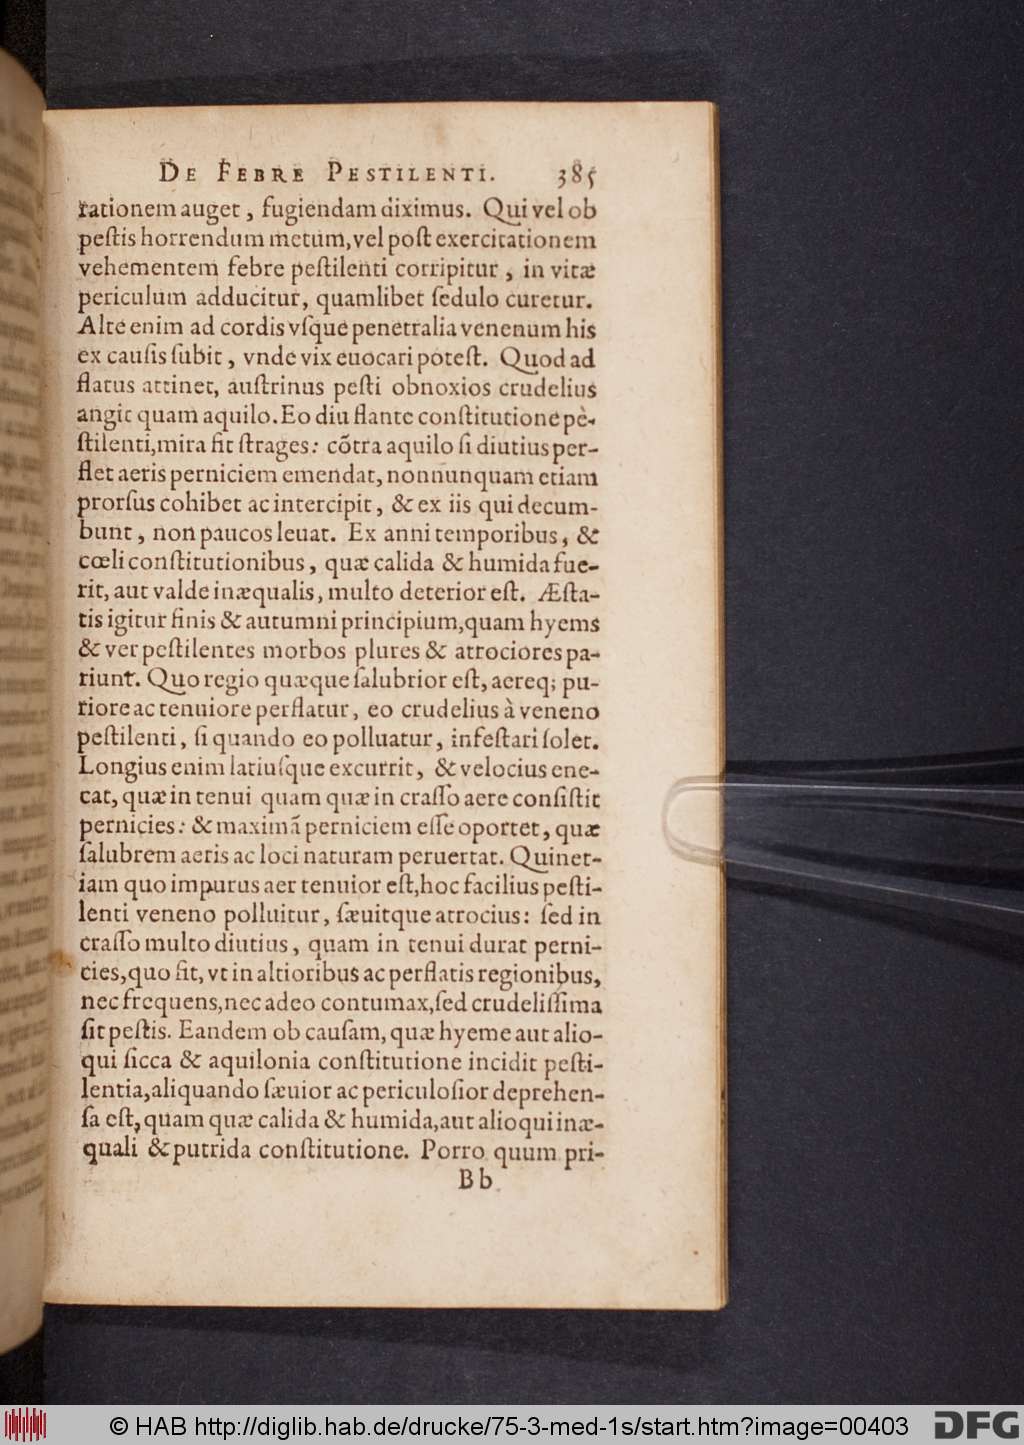 DE FEBRE PESTILENTI. 385
rationem auget, fugiendam diximus. Qui vel ob
peſtis horrendum metum, vel poſt exercitationem
vehementem febre peſtilenti corripitur, in vitæ
periculum adducitur, quamlibet ſedulo curetur.
Alte enim ad cordis vſque penetralia venenum his
ex cauſis ſubit, vnde vix euocari poteſt. Quod ad
flatus attinet, auſtrinus peſti obnoxios crudelius
angit quam aquilo. Eo diu flante conſtitutione pè-
ſtilenti, mira fit ſtrages: cõtra aquilo ſi diutius per-
flet aeris perniciem emendat, nonnunquam etiam
prorſus cohibet ac intercipit, & ex iis qui decum-
bunt, non paucos leuat. Ex anni temporibus, &
cœli conſtitutionibus, quæ calida & humida fue-
rit, aut valde inæqualis, multo deterior eſt. Æſta-
tis igitur finis & autumni principium, quam hyems
& ver peſtilentes morbos plures & atrociores pa-
riunt. Quo regio quæque ſalubrior eſt, aereq; pu-
riore ac tenuiore perflatur, eo crudelius à veneno
peſtilenti, ſi quando eo polluatur, infeſtari ſolet.
Longius enim latiuſque excurrit, & velocius ene-
cat, quæ in tenui quam quæ in craſſo aere conſiſtit
pernicies: & maximã perniciem eſſe oportet, quæ
ſalubrem aeris ac loci naturam peruertat. Quinet-
iam quo impurus aer tenuior eſt, hoc facilius peſti-
lenti veneno polluitur, ſæuitque atrocius: ſed in
craſſo multo diutius, quam in tenui durat perni-
cies, quo fit, vt in altioribus ac perflatis regionibus,
nec frequens, nec adeo contumax, ſed crudeliſſima
ſit peſtis. Eandem ob cauſam, quæ hyeme aut alio-
qui ſicca & aquilonia conſtitutione incidit peſti-
lentia, aliquando ſæuior ac periculoſior deprehen-
ſa eſt, quam quæ calida & humida, aut alioqui inæ-
quali & putrida conſtitutione. Porro quum pri-
Bb
© HAB http://diglib.hab.de/drucke/75-3-med-1s/start.htm?image=00403 DFG